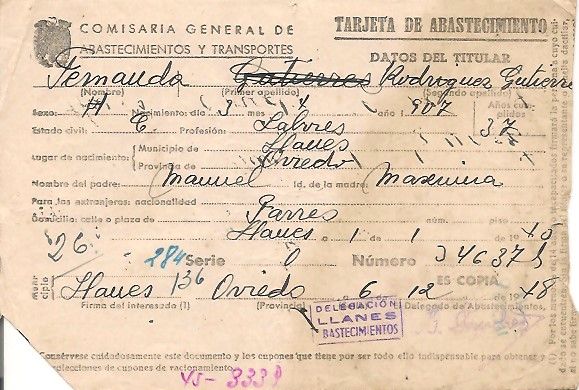 COMISARIA GENERAL DE
ABASTECIMIENTOS Y TRANSPORTES
TARJETA DE ABASTECIMIENTO
DATOS DEL TITULAR
Fernanda Gutierres Rodriguez Gutierre
(Nombre) (Primer apellido) (Segundo apellido)
Sexo: H Nacimiento: día 3 mes año 1907 Años cumplidos 37
Estado civil: C Profesión: Labores
Lugar de nacimiento: Municipio de Llanes
Provincia de Oviedo
Nombre del padre: Manuel Id. de la madre: Maximina
Para los extranjeros: nacionalidad
Domicilio: calle o plaza de Parres núm. piso
Llanes a 1 de 1 de 19
26 284 Serie O Número
ES COPIA
Llanes 136 Oviedo 6 12 de 1948
Firma del interesado (1) (Provincia) Delegado de Abastecimientos,
DELEGACIÓN
LLANES
ABASTECIMIENTOS
Consérvese cuidadosamente este documento y los cupones que tiene por ser todo ello indispensable para obtener
colecciones de cupones de racionamiento.